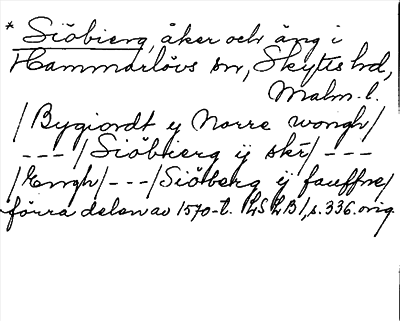 * Siöbierg, åker och äng i
Hammarlövs sn, Skytts hd,
Malm. l.
/Bygiordt ij Norre wongh/
--- /Siöbierg ij skr/ ---
/Engh/ --- /Siöberg ij fauffne/
förra delen av 1570-t. LSLB 1, s. 336. orig.